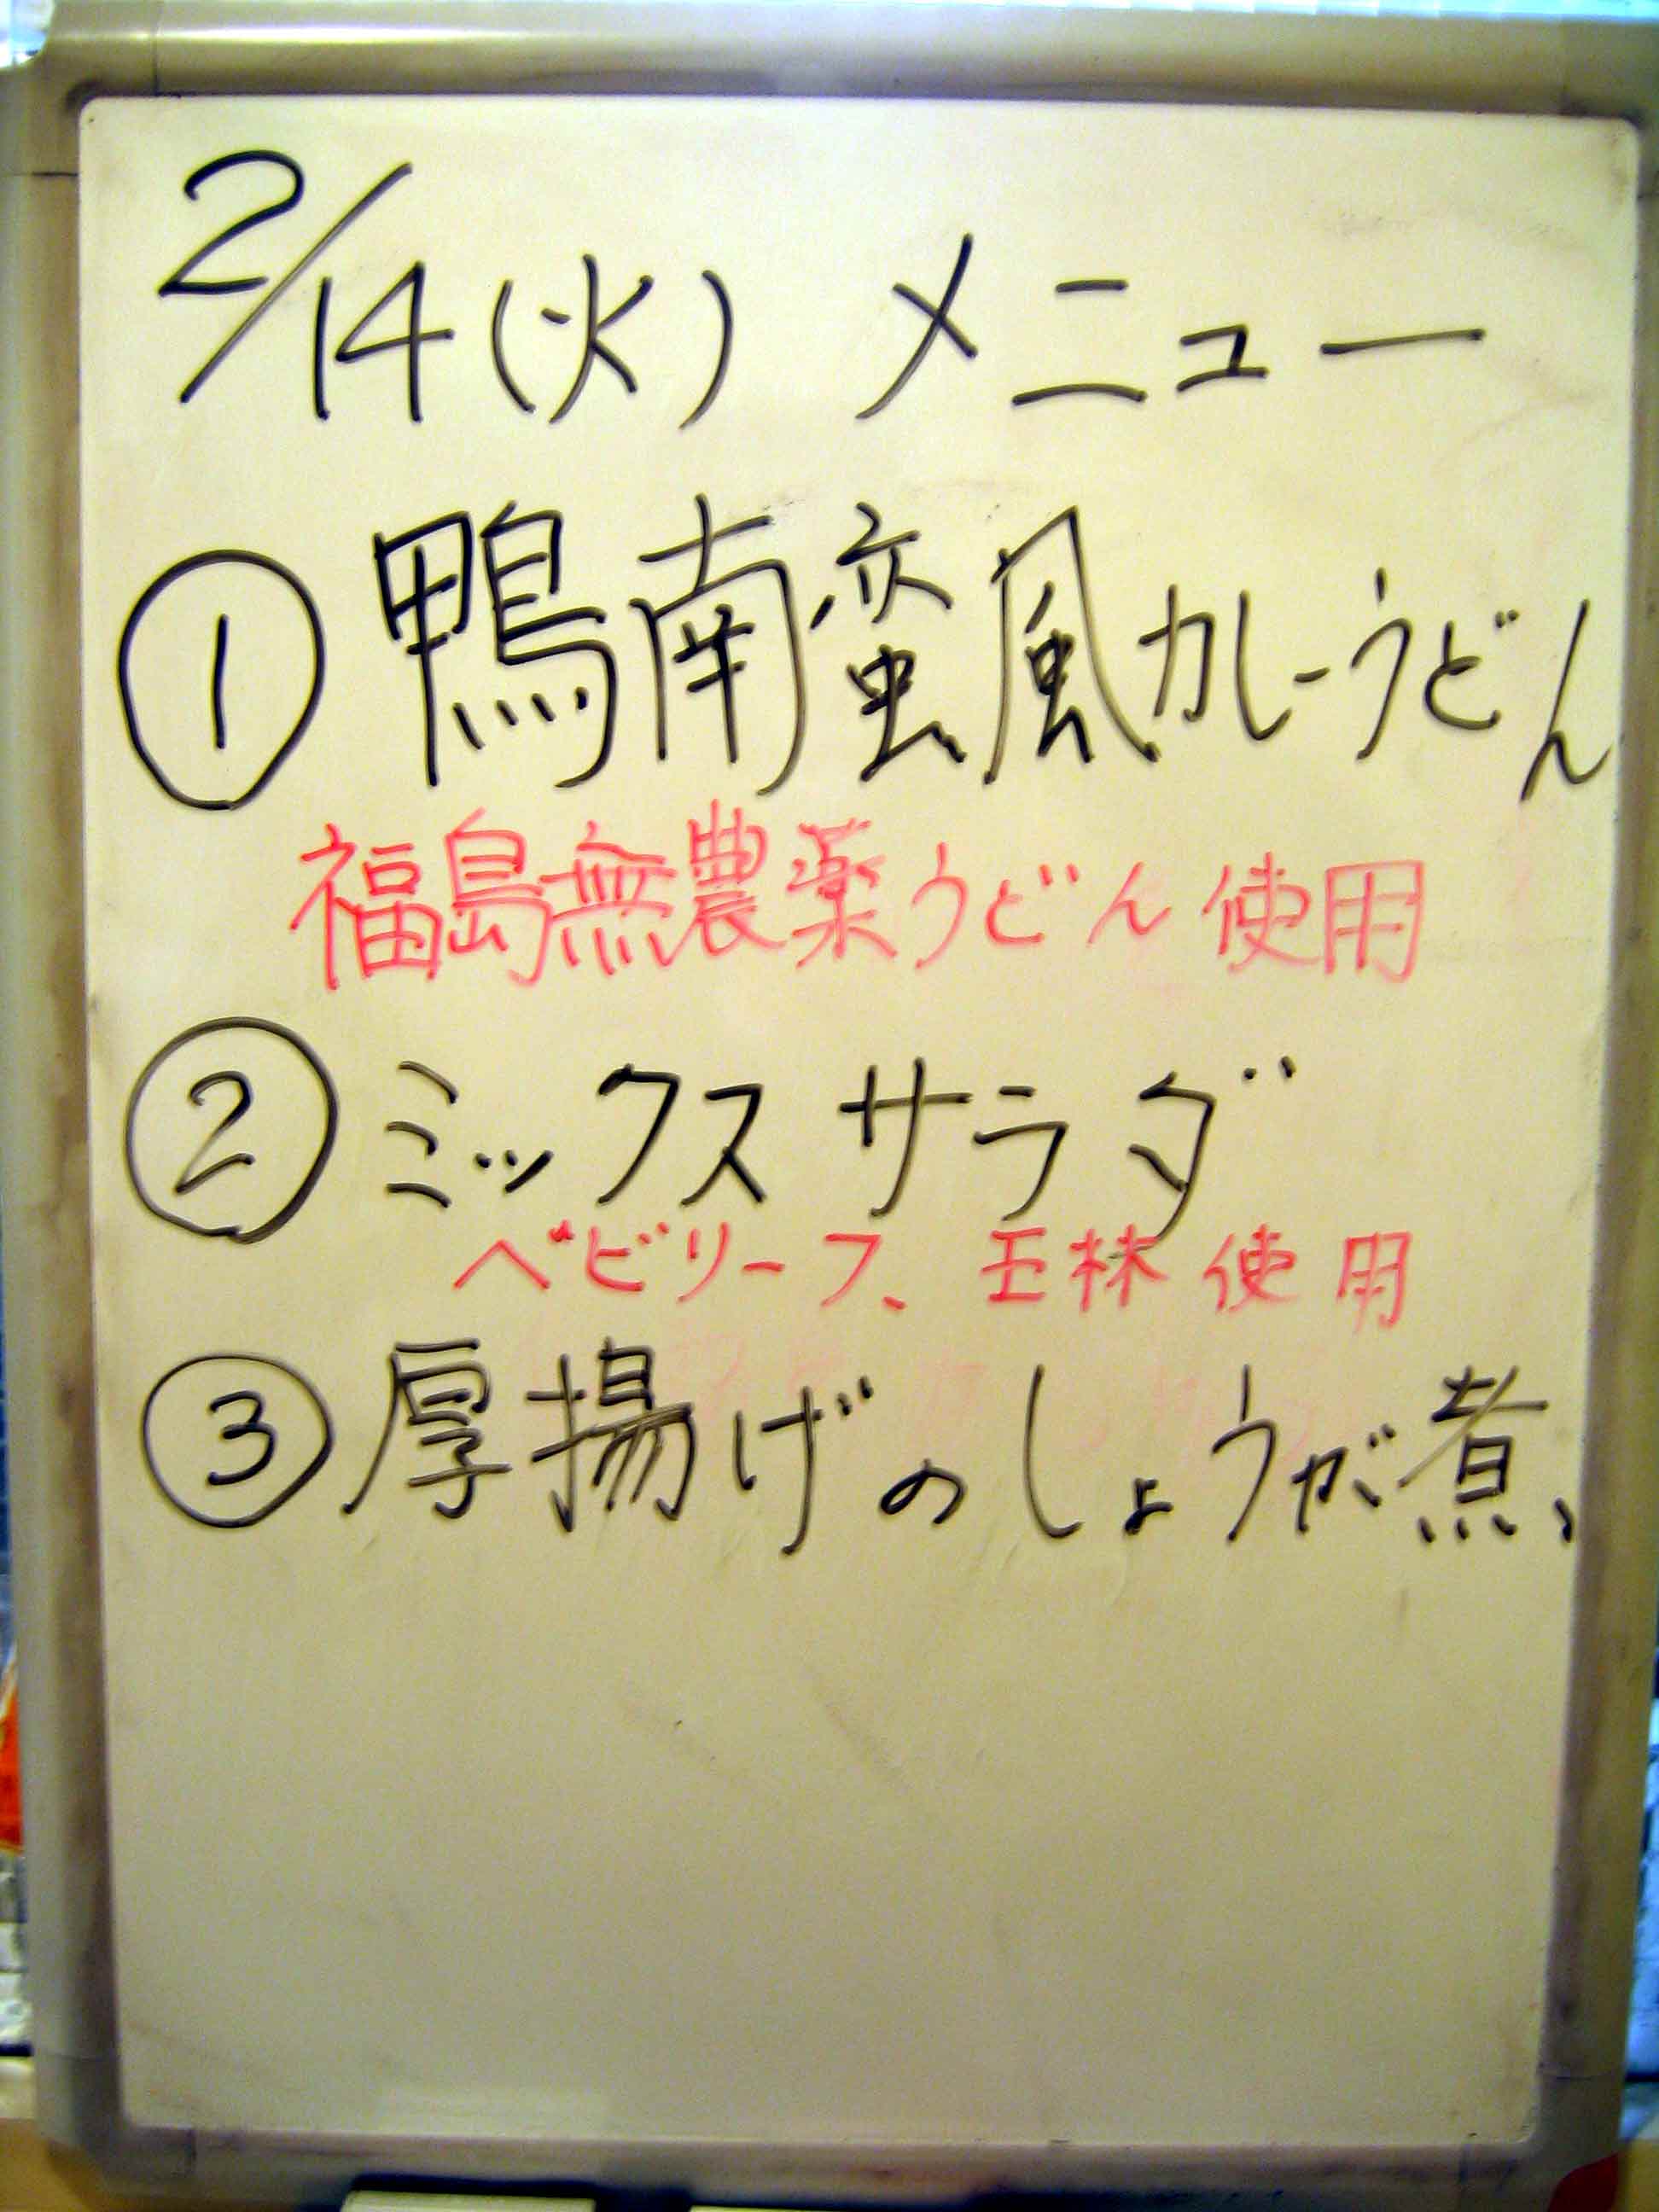 2/14(火) メニュー
① 鴨南蛮風カレーうどん
福島無農薬うどん使用
② ミックスサラダ
ベビリーフ、王林使用
③ 厚揚げのしょうが煮、